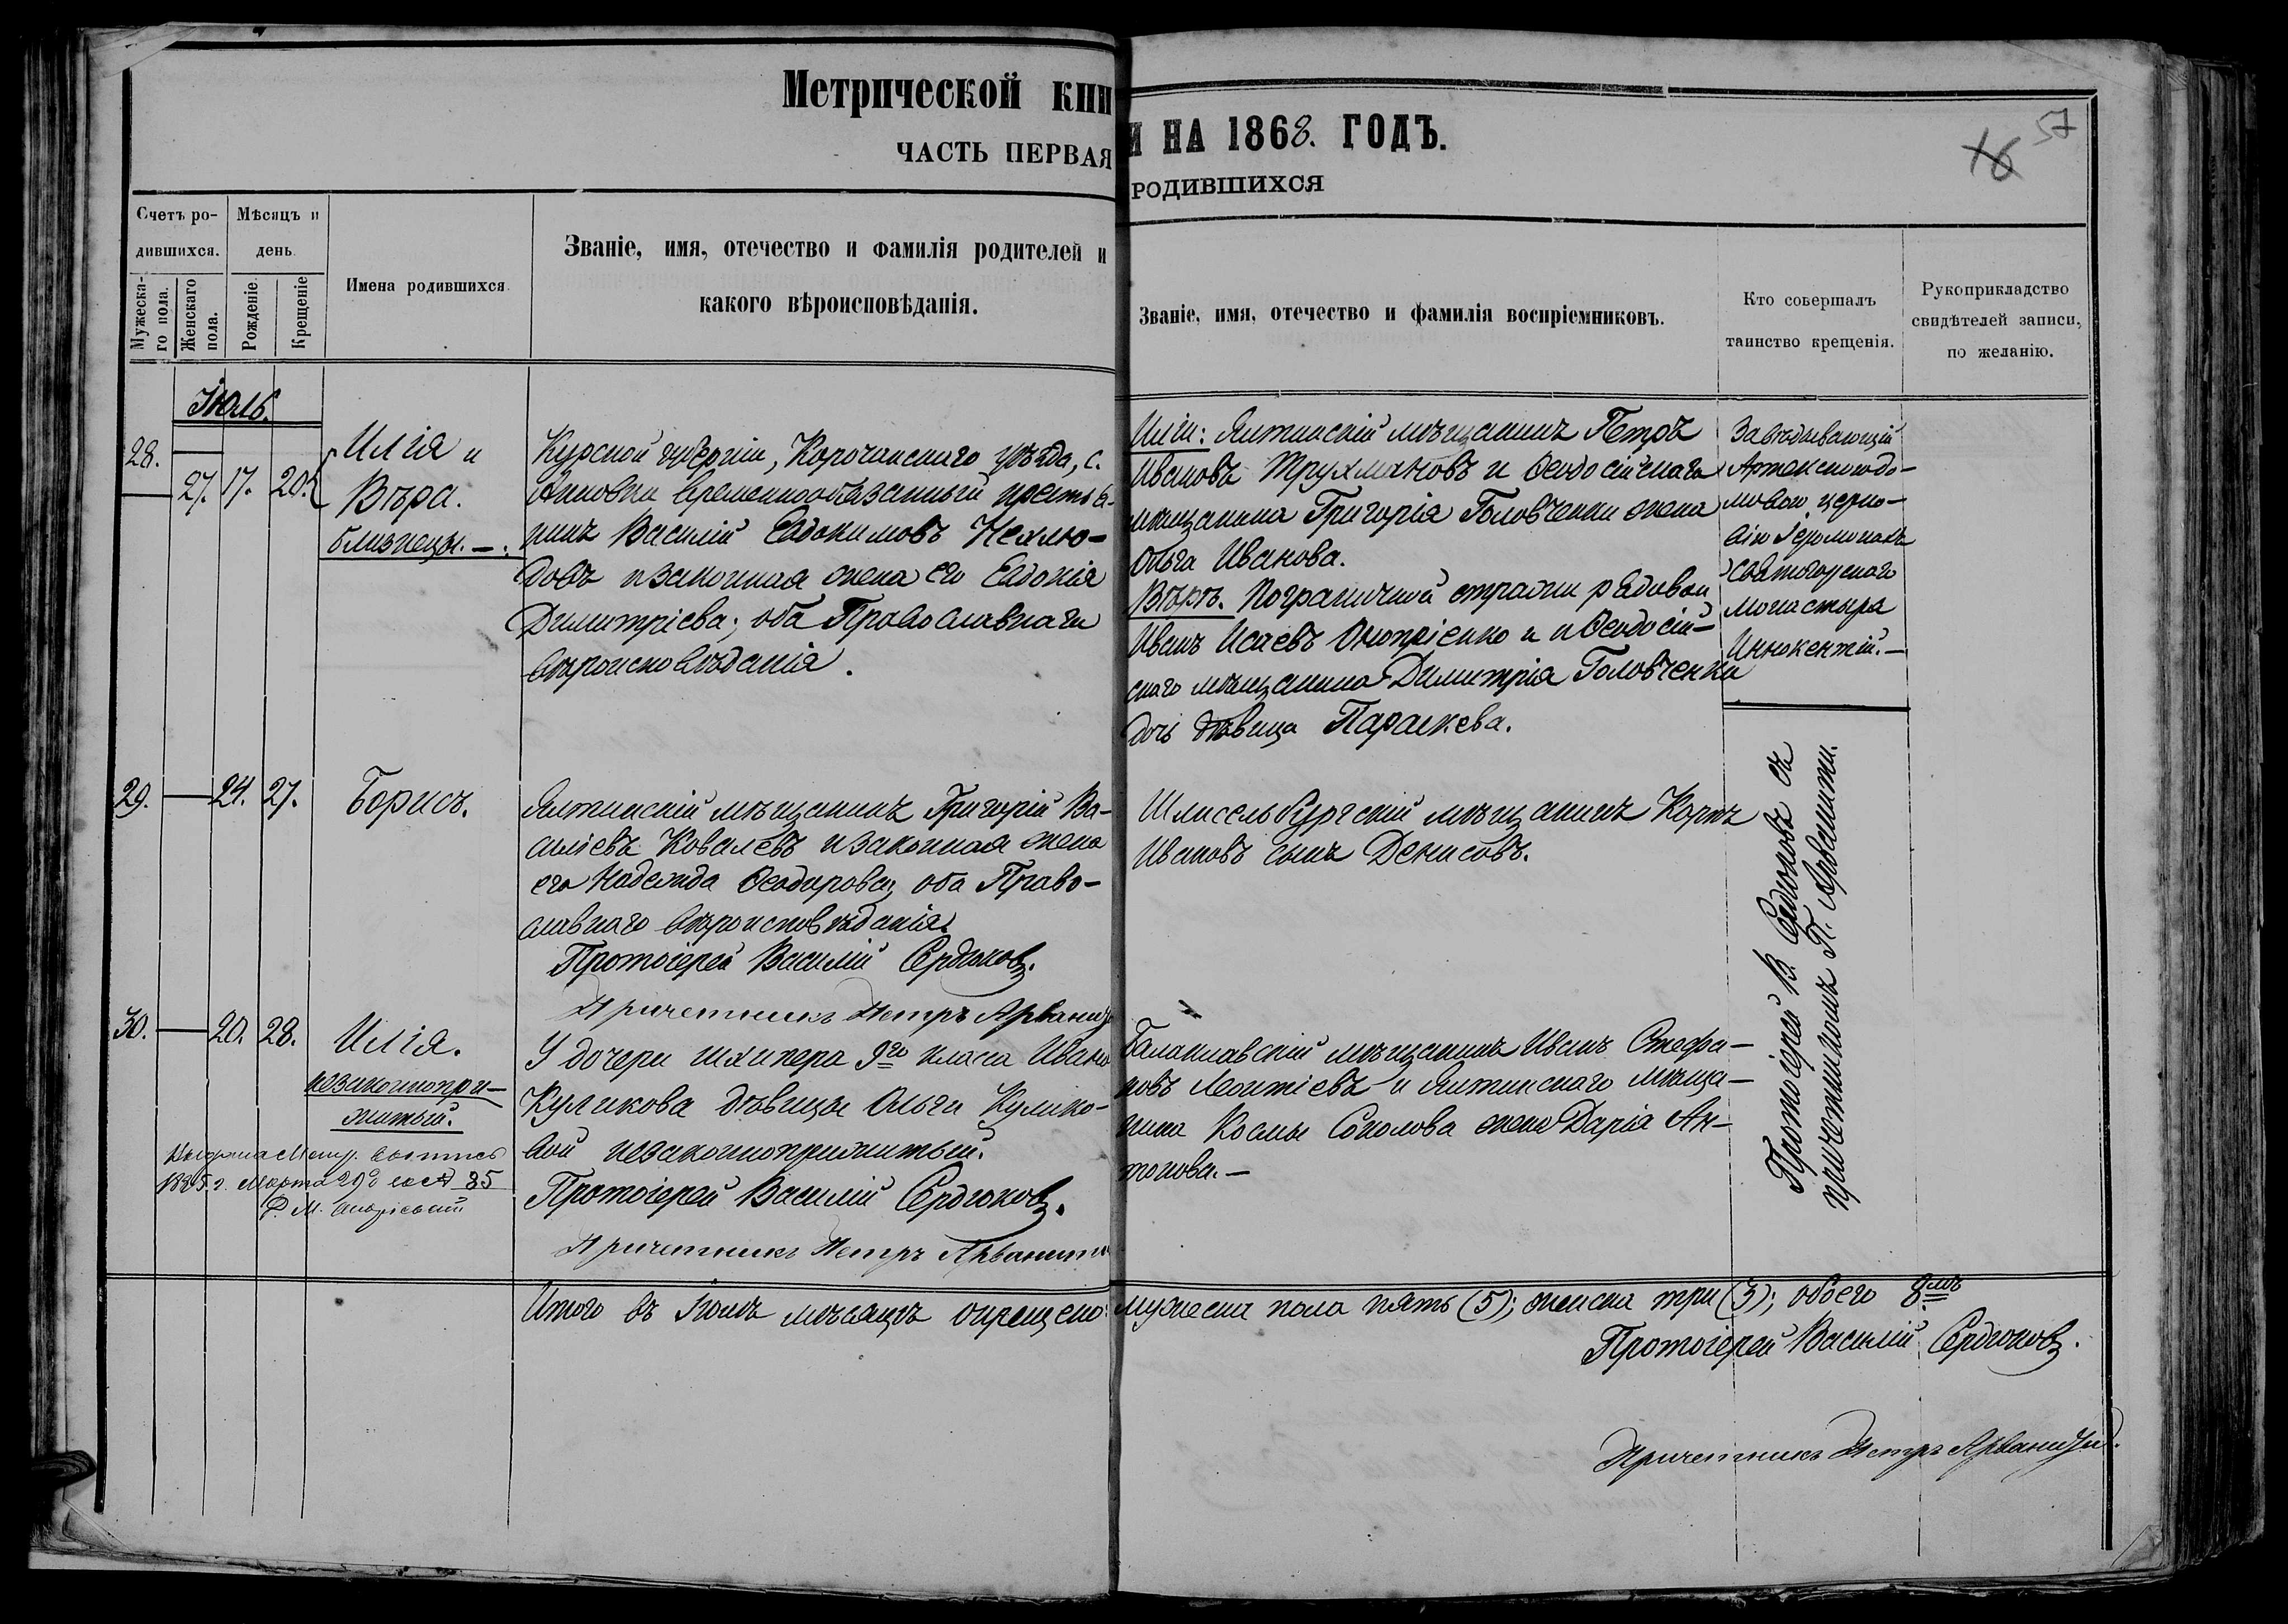 Метрической кни
И НА 1868. ГОДЪ.
ЧАСТЬ ПЕРВАЯ
РОДИВШИХСЯ
16 57
Счетъ ро-
дившихся.
Мѣсяцъ и
день.
Мужеска-
го пола.
Женскаго
пола.
Рожденіе.
Крещеніе
Имена родившихся.
Званіе, имя, отечество и фамилія родителей и
какого вѣроисповѣданія.
Званіе, имя, отечество и фамилія воспріемниковъ.
Кто совершалъ
таинство крещенія.
Рукоприкладство
свидѣтелей записи,
по желанію.
Іюль.
28. —
— 27. 17. 20.
Илія и
Вѣра.
близнецы. —
Курской губерніи, Корочанскаго уѣзда, с.
временнообязанный крестья-
нинъ Василій Евдокимовъ Нехлю-
довъ и законная жена его Евдокія
Димитріева; оба Православнаго
вѣроисповѣданія.
Иліи: Ялтинскій мѣщанинъ Петръ
Ивановъ Трухмановъ и Ѳеодосійскаго
мѣщанина Григорія Головченки жена
Ольга Иванова.
Вѣры. Пограничной стражи рядовой
Иванъ Исаевъ Онопріенко и Ѳеодосій-
скаго мѣщанина Димитрія Головченки
дочь дѣвица Параскева.
Завѣдывающій
Артекскою до-
мовою церко-
вію Іеромонахъ
Святогорскаго
монастыря
Иннокентій. —
29. — 24. 27.
Борисъ.
Ялтинскій мѣщанинъ Григорій Ва-
силіевъ Ковалевъ и законная жена
его Надежда Ѳеодорова; оба Право-
славнаго вѣроисповѣданія.
Протоіерей Василій Сердюковъ.
Причетникъ Петръ Арвани
Шлиссельбургскій мѣщанинъ Карпъ
Ивановъ сынъ Денисовъ.
Протоіерей В. Сердюковъ съ
причетникомъ П. Арванити.
30. — 20. 28.
Илія.
незаконнопри-
житый.
Метр. выпись
1885 г. Марта 29 за № 35
У дочери шхипера 9го класа Ивана
Куликова дѣвицы Ольги Кулико-
вой незаконноприжитый.
Протоіерей Василій Сердюковъ.
Причетникъ Петръ Арванити
Балаклавскій мѣщанинъ Иванъ Стефа-
новъ Леонтіевъ и Ялтинскаго мѣща-
нина Космы Соколова жена Дарія Ан-
тонова. —
Итого въ Іюлѣ мѣсяцѣ окрещено: мужеска пола пять (5); женска три (3); обоего 8.мь
Протоіерей Василій Сердюковъ.
Причетникъ Петръ Арванити.